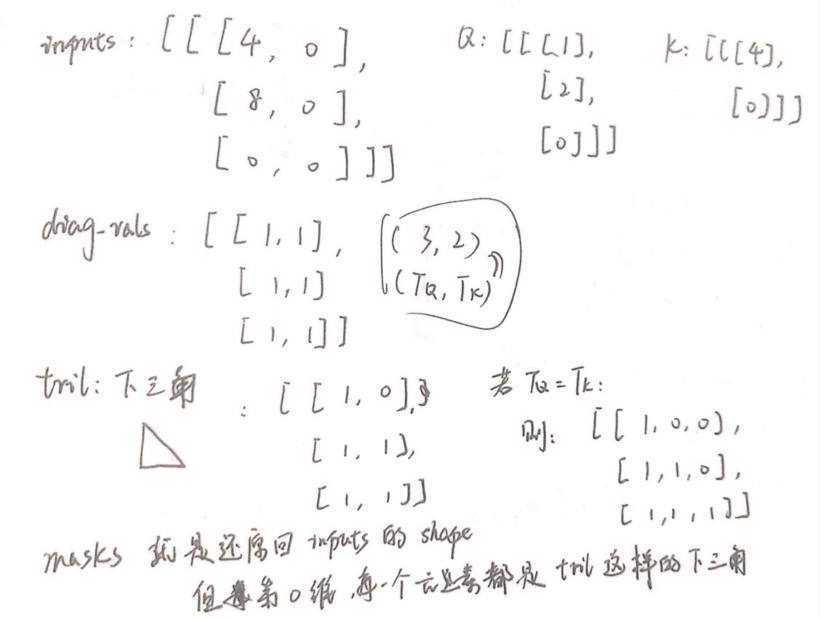 inputs: [[[4, 0],
[8, 0],
[0, 0]]]
Q: [[[1],
[2],
[0]]]
K: [[[4],
[0]]]
diag-vals: [[1,1],
[1,1]
[1,1]]
(3,2)
(TQ, TK)
tril: 下三角
: [[1,0],
[1,1],
[1,1]]
若 TQ=Tk:
则: [[1,0,0],
[1,1,0],
[1,1,1]]
masks 就是还原回 inputs 的 shape
但 第0维,每一个元素都是 tril 这样的下三角